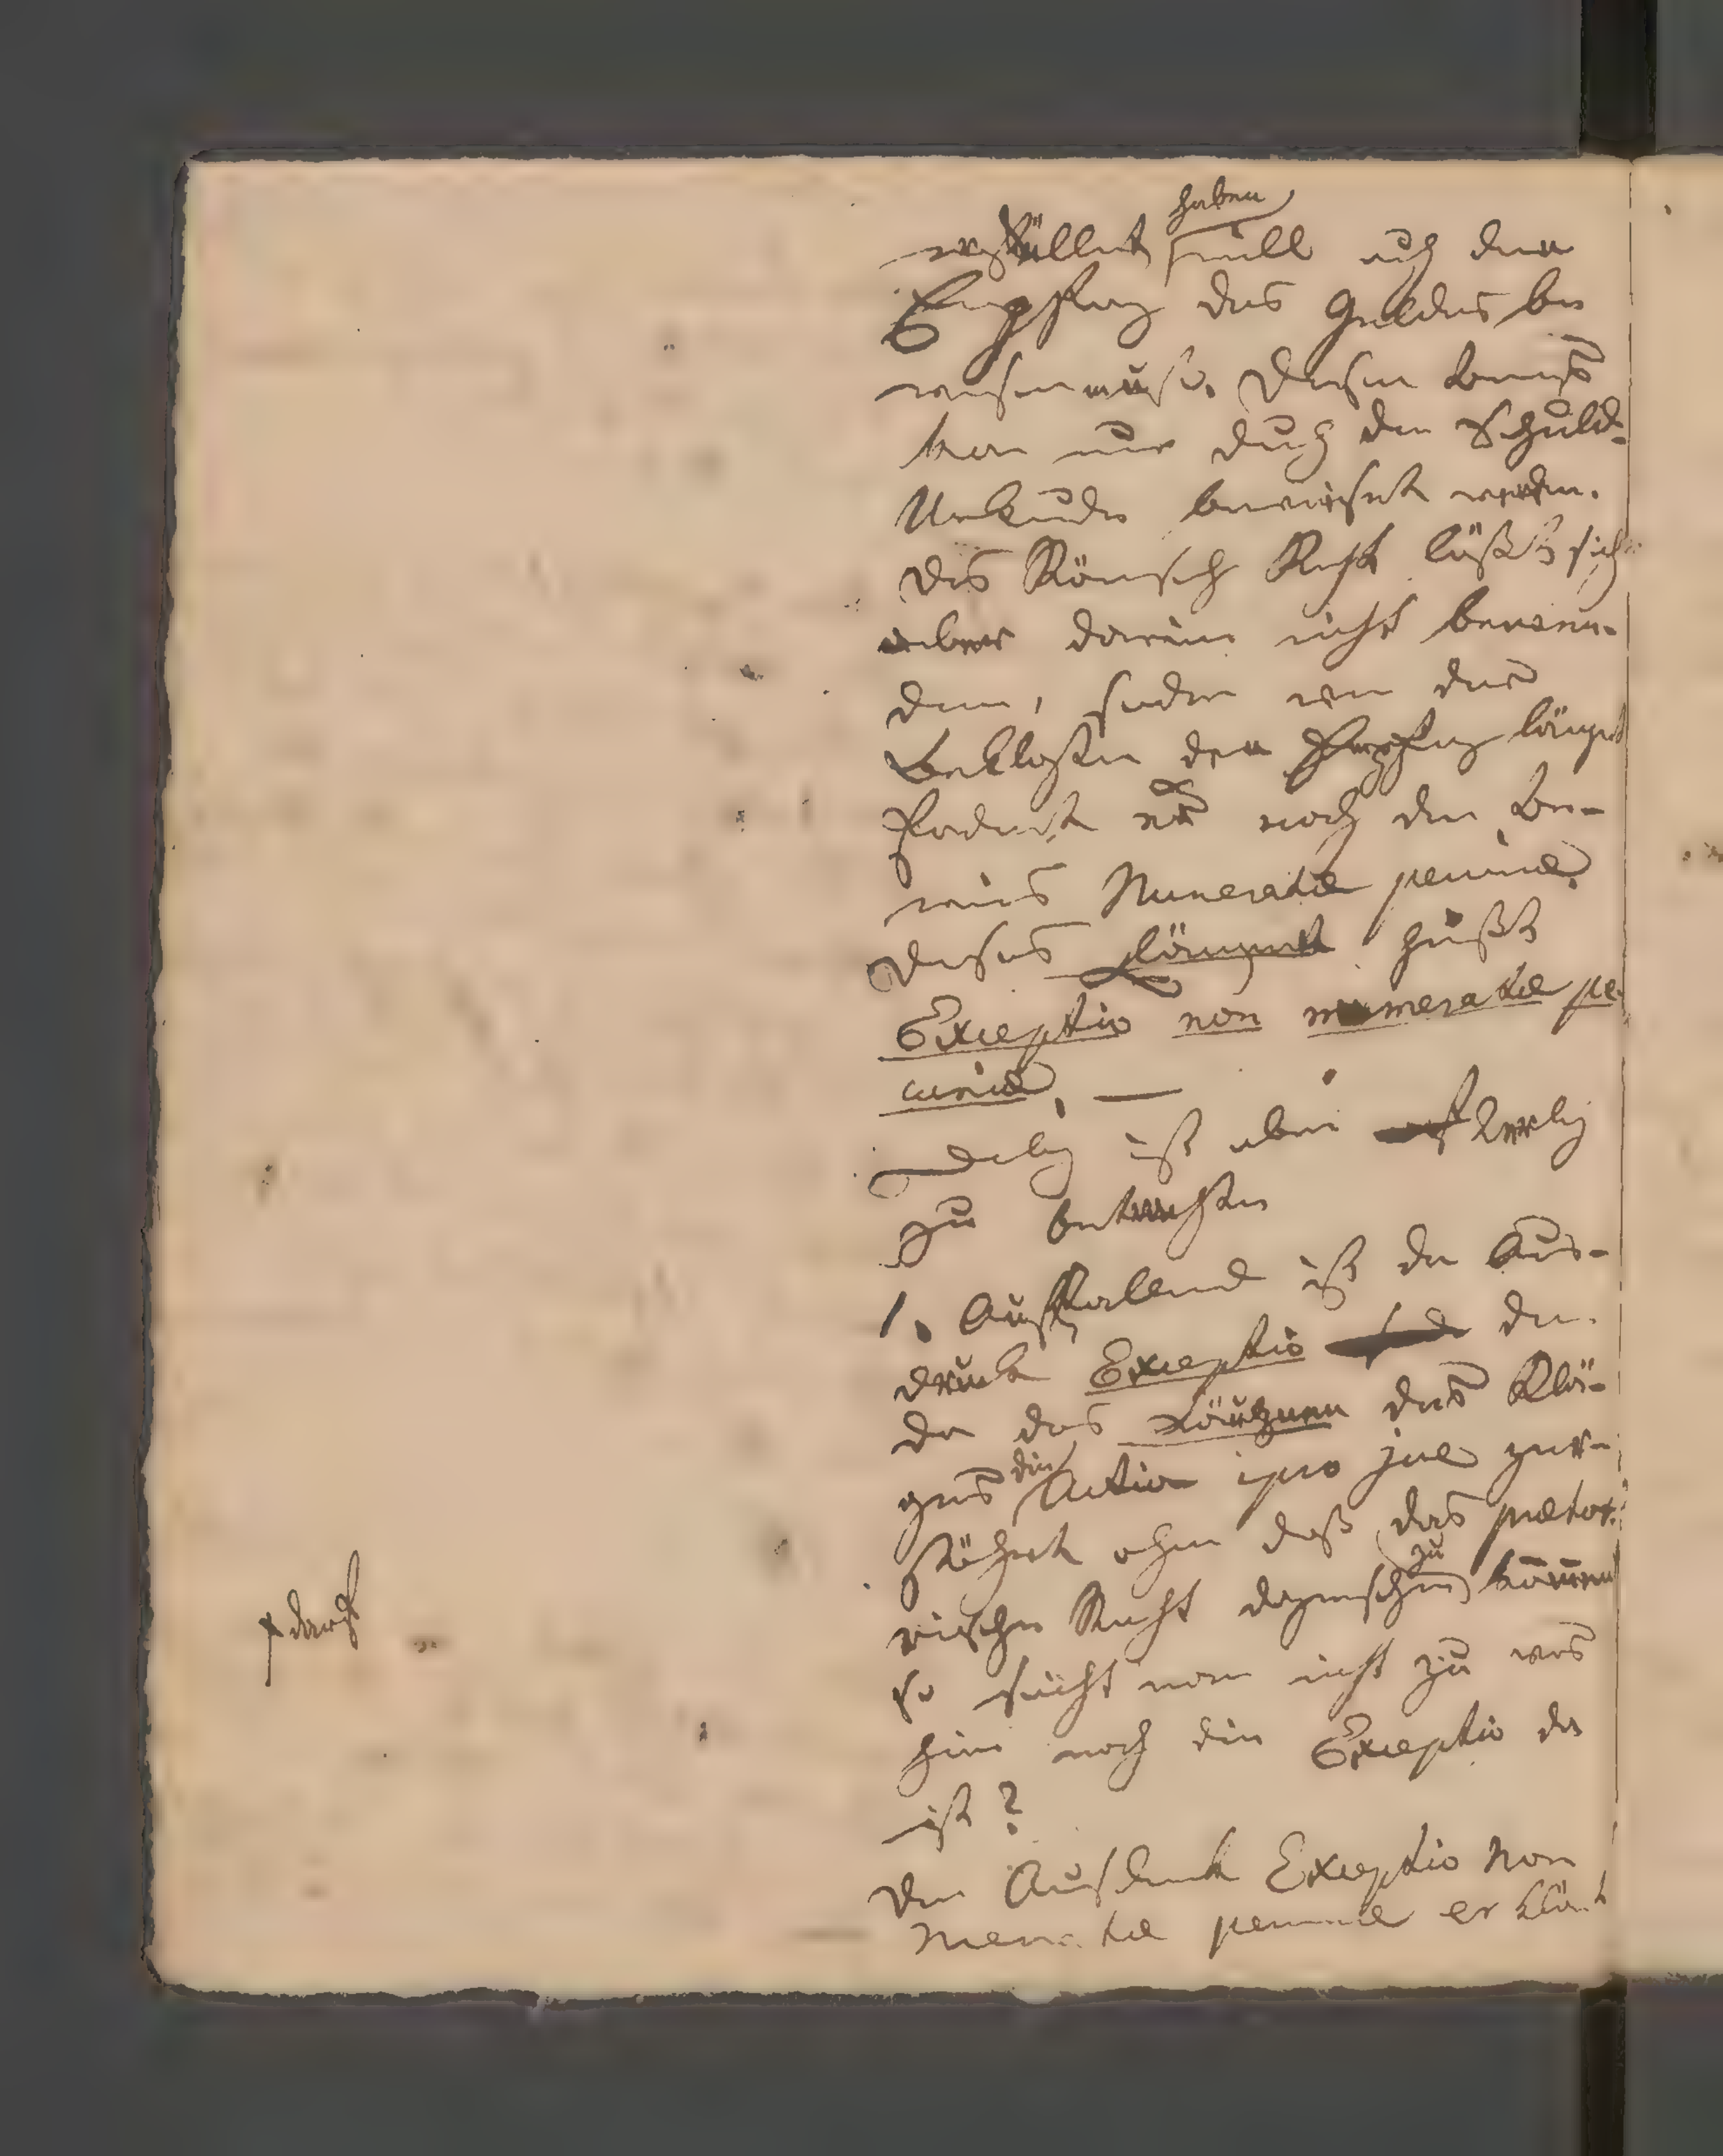 haben
erfüllet soll auch den
Empfang des Geldes be
weisen muß. Dieser Beweis
kan nur durch den Schuld-
Urkunde bewirket werden.
Das Römisch Recht läßt sich
aber darin nicht bewen-
den, sondern wen der
Beklagten den Empfang läugnet
fodert es noch den Be-
weis Numeratae pecuniae.
Dieses läugnet heißt
Exceptio non numeratae pe
cuniae. —
Dabey ist aber
zu betrachten
1. Auffallend ist der Aus-
druck Exceptio den
da das Läugnen des Klä-
gers die Action ipso jure zer-
stöhret ohne daß das praeto-
rische Recht dazwischen zu kommen
+ darf
so sieht man nicht zu was
hier noch die Exceptio da
ist?
Den Ausdruck Exceptio non
numeratae pecuniae erklärt